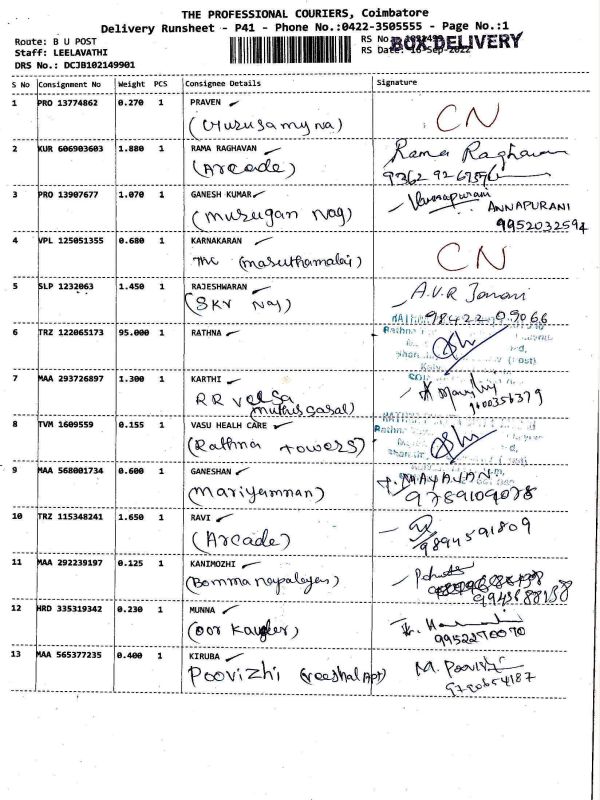 THE PROFESSIONAL COURIERS, Coimbatore
Delivery Runsheet - P41 - Phone No.:0422-3505555 - Page No.:1
Route: B U POST
RS No.
BOX DELIVERY
Staff: LEELAVATHI
RS Date: 16-Sep-2022
DRS No.: DCJB102149901
S No Consignment No Weight PCS Consignee Details Signature
1 PRO 13774862 0.270 1 PRAVEN
CN
2 KUR 606903603 1.880 1 RAMA RAGHAVAN Rama Raghavan
(Arcade)
3 PRO 13907677 1.070 1 GANESH KUMAR Annapurani
(Murugan Nag) ANNAPURANI
9952032594
4 VPL 125051355 0.680 1 KARNAKARAN CN
(Maruthamalai)
5 SLP 1232063 1.450 1 RAJESHWARAN A.V.R Janani
(SKV Nag) 98422 09066
6 TRZ 122065173 95.000 1 RATHNA
7 MAA 293726897 1.300 1 KARTHI
RR
9600356379
8 TVM 1609559 0.155 1 VASU HEALH CARE
(Rathna Towers)
9 MAA 568001734 0.600 1 GANESHAN MAYAVAN
(Mariyamman) 9789109078
10 TRZ 115348241 1.650 1 RAVI
(Arcade) 9894591809
11 MAA 292239197 0.125 1 KANIMOZHI
9943688138
12 HRD 335319342 0.230 1 MUNNA
9952270070
13 MAA 565377235 0.400 1 KIRUBA
Poovizhi (Veeshal Apt) M. Poovizhi